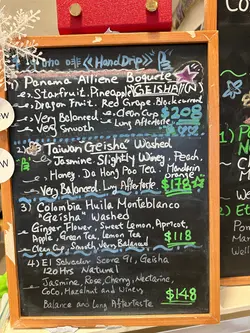 《Hand Drip》
1) Panama Alliene Boquete
Starfruit. Pineapple, GEISHA (N)
Dragon Fruit. Red Grape. Blackcurrant
Clean Cup
Very Balanced. Lung Aftertaste
Very Smooth
$208
Taiwan "Geisha" Washed
Jasmine. Slightly Winey, Peach
Honey. Da Hong Pao Tea. Mandarin
Orange
Very Balanced. Lung Aftertaste $178
3) Colombia Huila Monteblanco
"Geisha" Washed
Ginger Flower, Sweet Lemon, Apricot,
Apple, Green Tea, Lemon Tea
Clean Cup, Smooth, Very Balanced $118
4) El Salvador Score 91, Geisha
120Hrs Natural
Jasmine, Rose, Cherry, Nectarine
CoCo, Hazelnut and Winey
Balance and Lung Aftertaste
$148